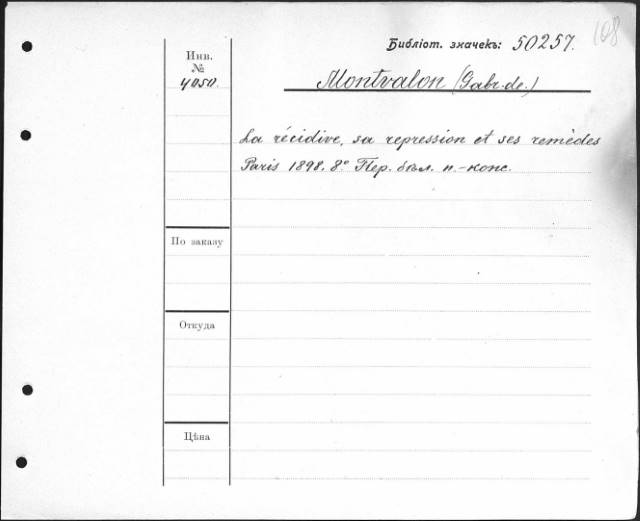 108
Библіот. значекъ: 50257.
Инв.
№
4050.
Montvalon (Gabr. de.)
La récidive, sa repression et ses remèdes
Paris 1898. 8º Пер. бѣл. п.-конс.
По заказу
Откуда
Цѣна